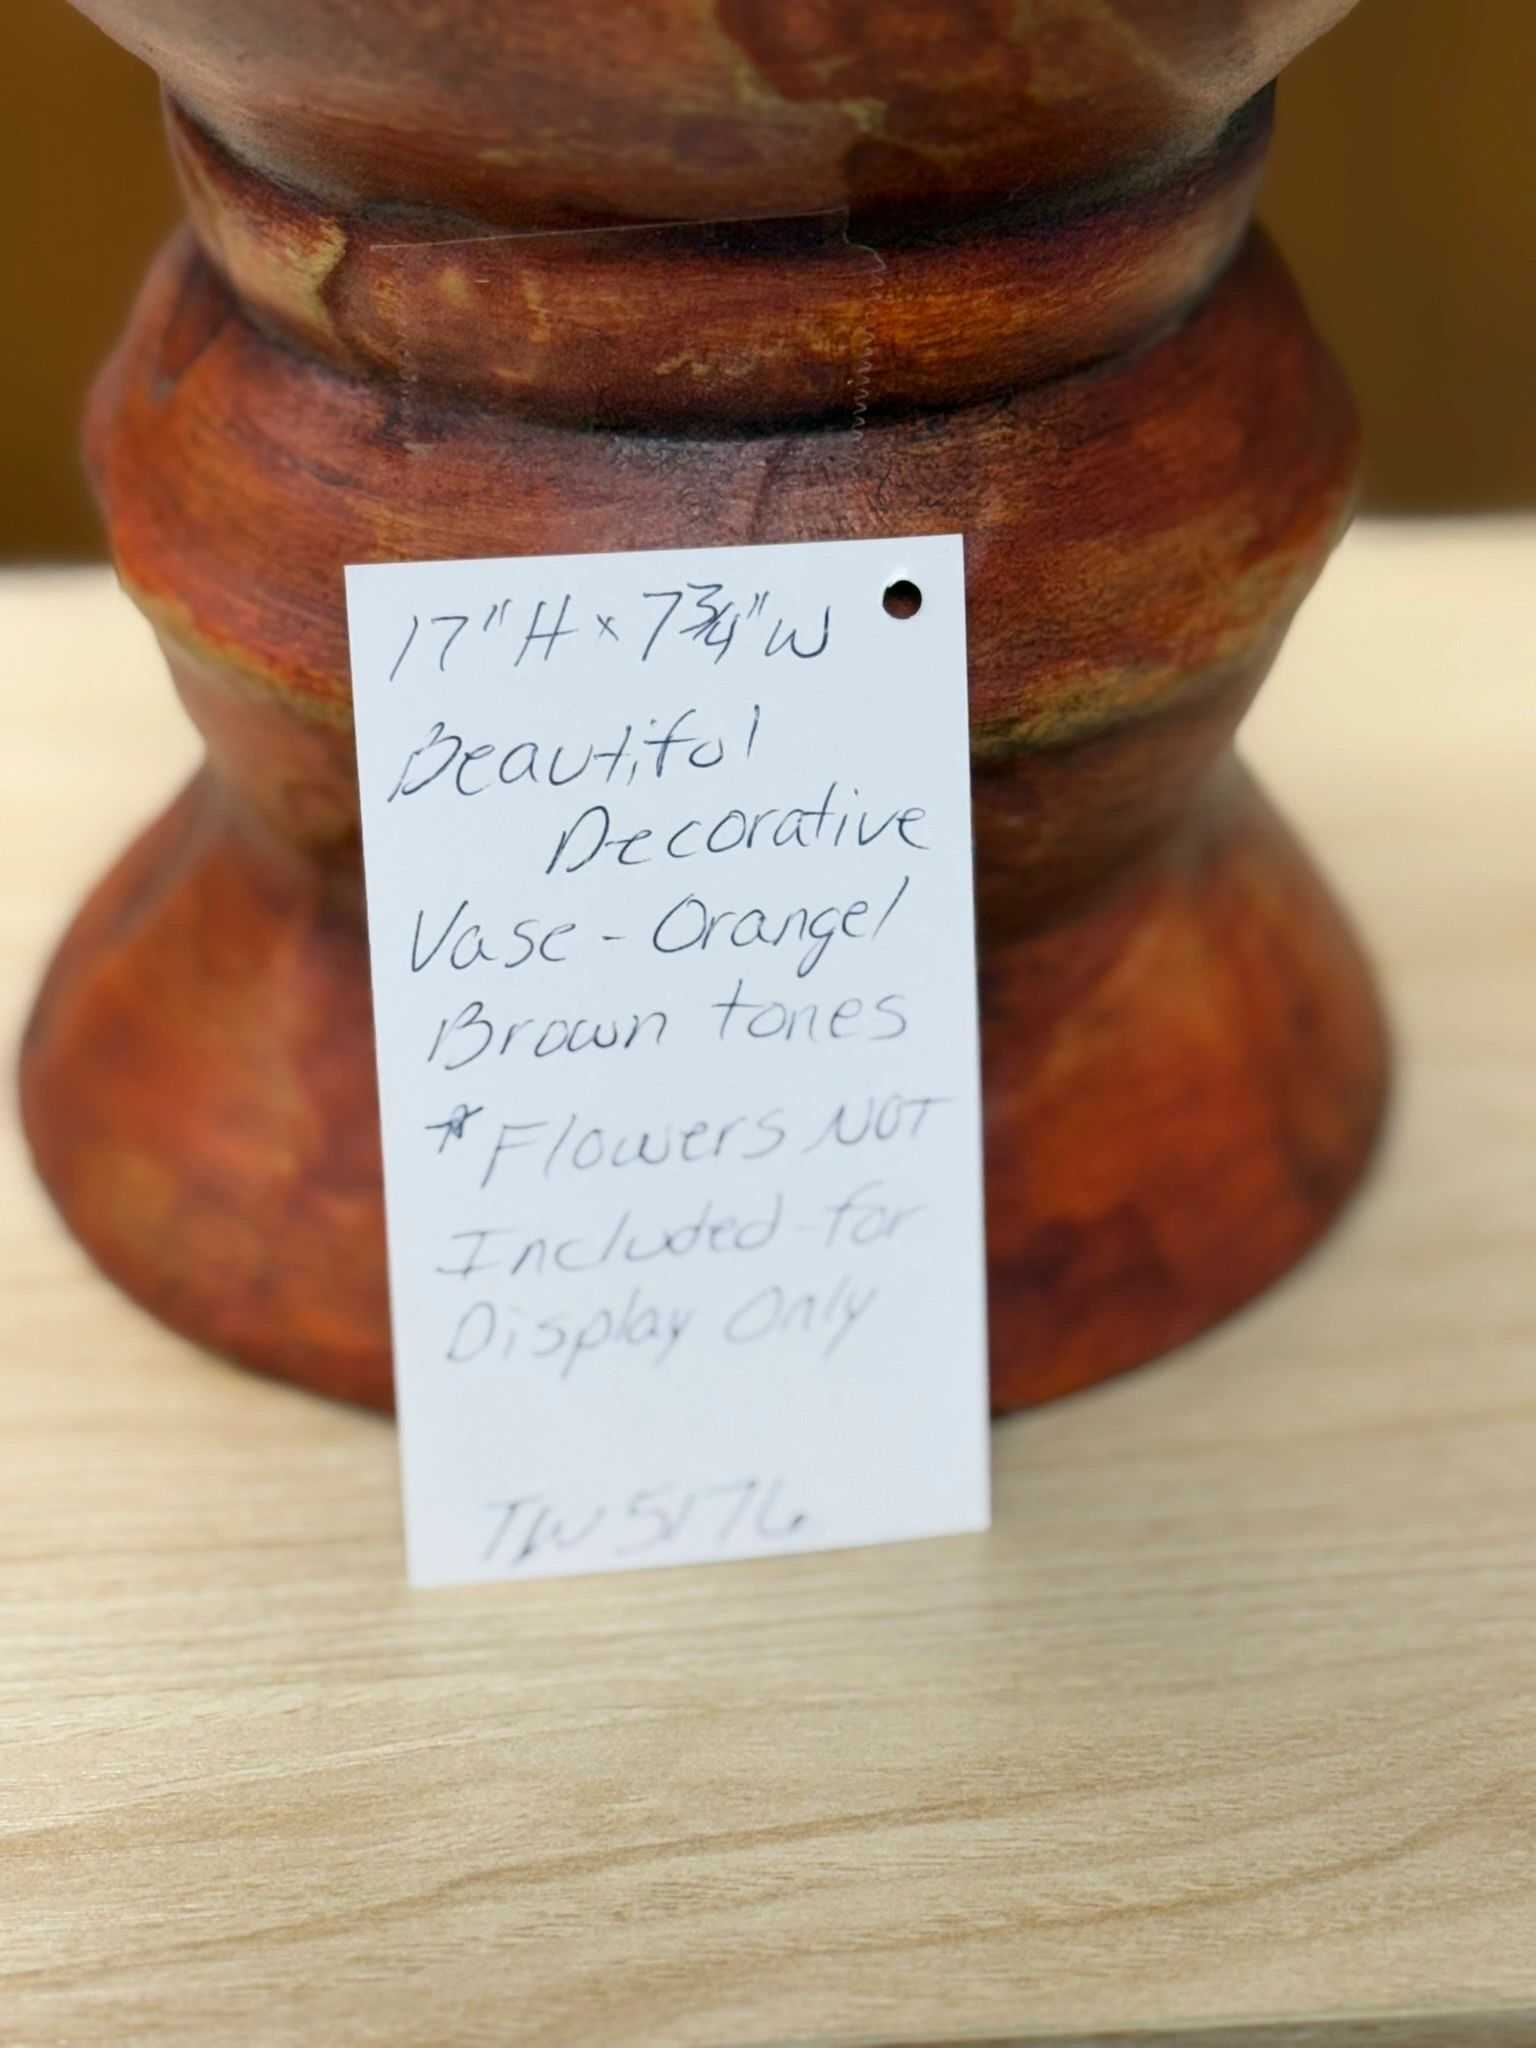 17"H x 7 3/4" W
Beautiful
Decorative
Vase - Orange/
Brown tones
* Flowers NOT
Included - for
Display Only
TW5176